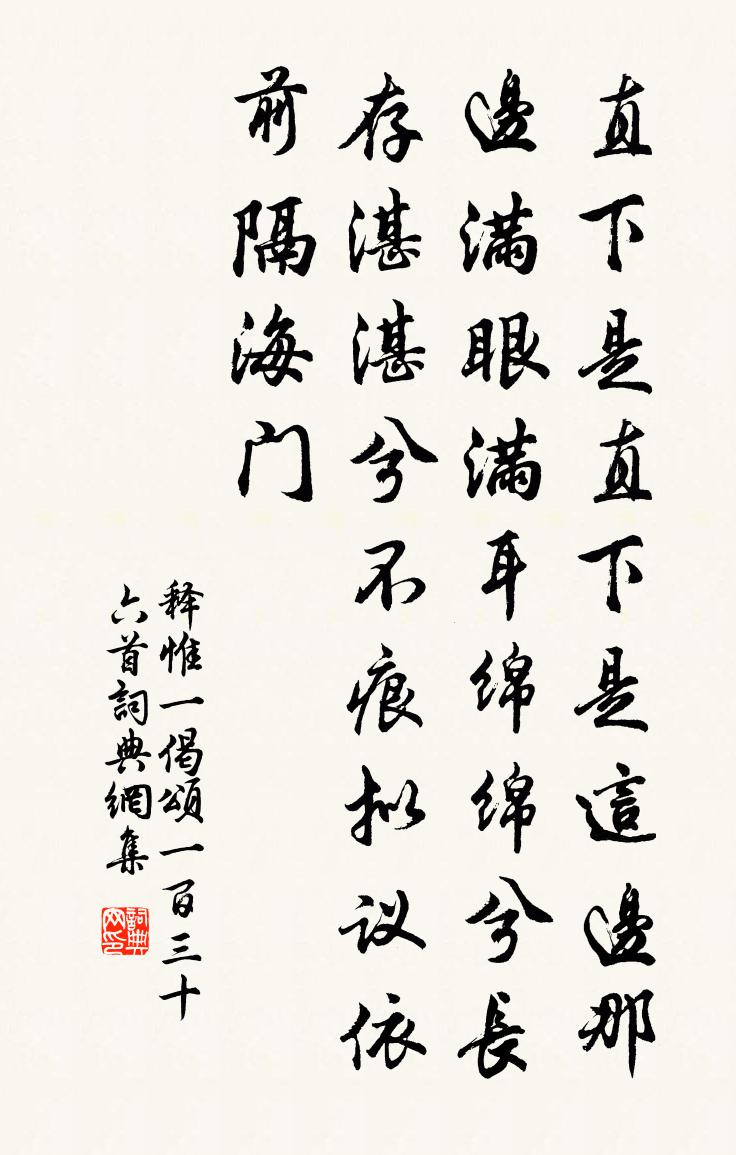 直下是直下是這邊那
邊滿眼滿耳綿綿兮長
存湛湛兮不痕拟议依
前隔海门
释惟一偈頌一百三十
六首詞典網集
詞典
网印